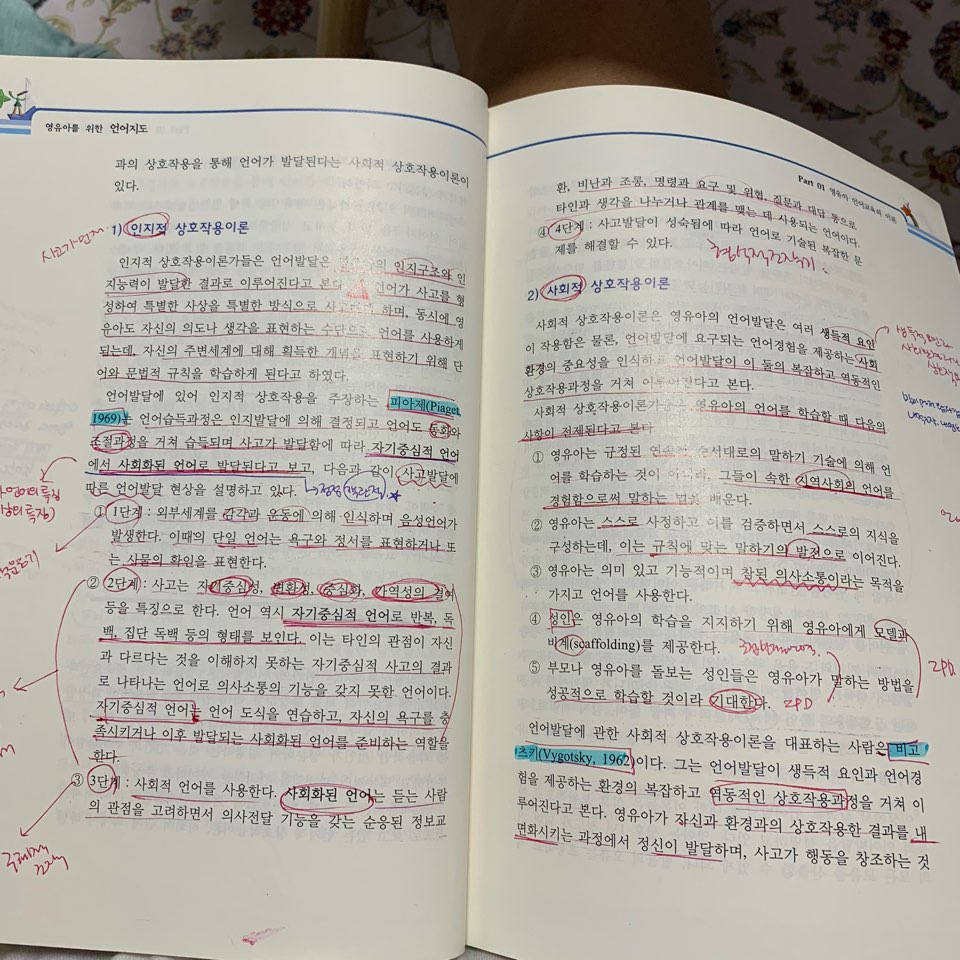 영유아를 위한 언어지도
과의 상호작용을 통해 언어가 발달된다는 사회적 상호작용이론이
있다.
사고가 먼저
1) 인지적 상호작용이론
인지적 상호작용이론가들은 언어발달은 인지구조와 인
지능력이 발달한 결과로 이루어진다고 본다. 언어가 사고를 형
성하여 특별한 사상을 특별한 방식으로 하며, 동시에 영
유아도 자신의 의도나 생각을 표현하는 수단으로 언어를 사용하게
되는데, 자신의 주변세계에 대해 획득한 개념을 표현하기 위해 단
어와 문법적 규칙을 학습하게 된다고 하였다.
언어발달에 있어 인지적 상호작용을 주장하는 피아제(Piaget,
1969)는 언어습득과정은 인지발달에 의해 결정되고 언어도 동화와
조절과정을 거쳐 습득되며 사고가 발달함에 따라 자기중심적 언어
에서 사회화된 언어로 발달된다고 보고, 다음과 같이 사고발달에
따른 언어발달 현상을 설명하고 있다.
① 1단계 : 외부세계를 감각과 운동에 의해 인식하며 음성언어가
발생한다. 이때의 단일 언어는 욕구와 정서를 표현하거나 또
는 사물의 확인을 표현한다.
② 2단계 : 사고는 자기중심성, 변환성, 중심화, 가역성의 결여
등을 특징으로 한다. 언어 역시 자기중심적 언어로 반복, 독
백, 집단 독백 등의 형태를 보인다. 이는 타인의 관점이 자신
과 다르다는 것을 이해하지 못하는 자기중심적 사고의 결과
로 나타나는 언어로 의사소통의 기능을 갖지 못한 언어이다.
자기중심적 언어는 언어 도식을 연습하고, 자신의 욕구를 충
족시키거나 이후 발달되는 사회화된 언어를 준비하는 역할을
한다.
③ 3단계 : 사회적 언어를 사용한다. 사회화된 언어는 듣는 사람
의 관점을 고려하면서 의사전달 기능을 갖는 순응된 정보교
Part 01 영유아 언어교육의 이론
환, 비난과 조롱, 명령과 요구 및 위협, 질문과 대답 등으로
타인과 생각을 나누거나 관계를 맺는 데 사용되는 언어이다.
④ 4단계 : 사고발달이 성숙됨에 따라 언어로 기술된 복잡한 문
제를 해결할 수 있다.
형식적조작기
2) 사회적 상호작용이론
사회적 상호작용이론은 영유아의 언어발달은 여러 생득적 요인
이 작용함은 물론, 언어발달에 요구되는 언어경험을 제공하는 사회
환경의 중요성을 인식하고 언어발달이 이 둘의 복잡하고 역동적인
상호작용과정을 거쳐 이루어진다고 본다.
사회적 상호작용이론가들은 영유아의 언어를 학습할 때 다음의
사항이 전제된다고 본다.
① 영유아는 규정된 연속적, 순서대로의 말하기 기술에 의해 언
어를 학습하는 것이 아니라, 그들이 속한 지역사회의 언어를
경험함으로써 말하는 법을 배운다.
② 영유아는 스스로 사정하고 이를 검증하면서 스스로의 지식을
구성하는데, 이는 규칙에 맞는 말하기의 발전으로 이어진다.
③ 영유아는 의미 있고 기능적이며 참된 의사소통이라는 목적을
가지고 언어를 사용한다.
④ 성인은 영유아의 학습을 지지하기 위해 영유아에게 모델과
비계(scaffolding)를 제공한다.
⑤ 부모나 영유아를 돌보는 성인들은 영유아가 말하는 방법을
성공적으로 학습할 것이라 기대한다. ZPD
ZPD
언어발달에 관한 사회적 상호작용이론을 대표하는 사람은 비고
츠키(Vygotsky, 1962)이다. 그는 언어발달이 생득적 요인과 언어경
험을 제공하는 환경의 복잡하고 역동적인 상호작용과정을 거쳐 이
루어진다고 본다. 영유아가 자신과 환경과의 상호작용한 결과를 내
면화시키는 과정에서 정신이 발달하며, 사고가 행동을 창조하는 것